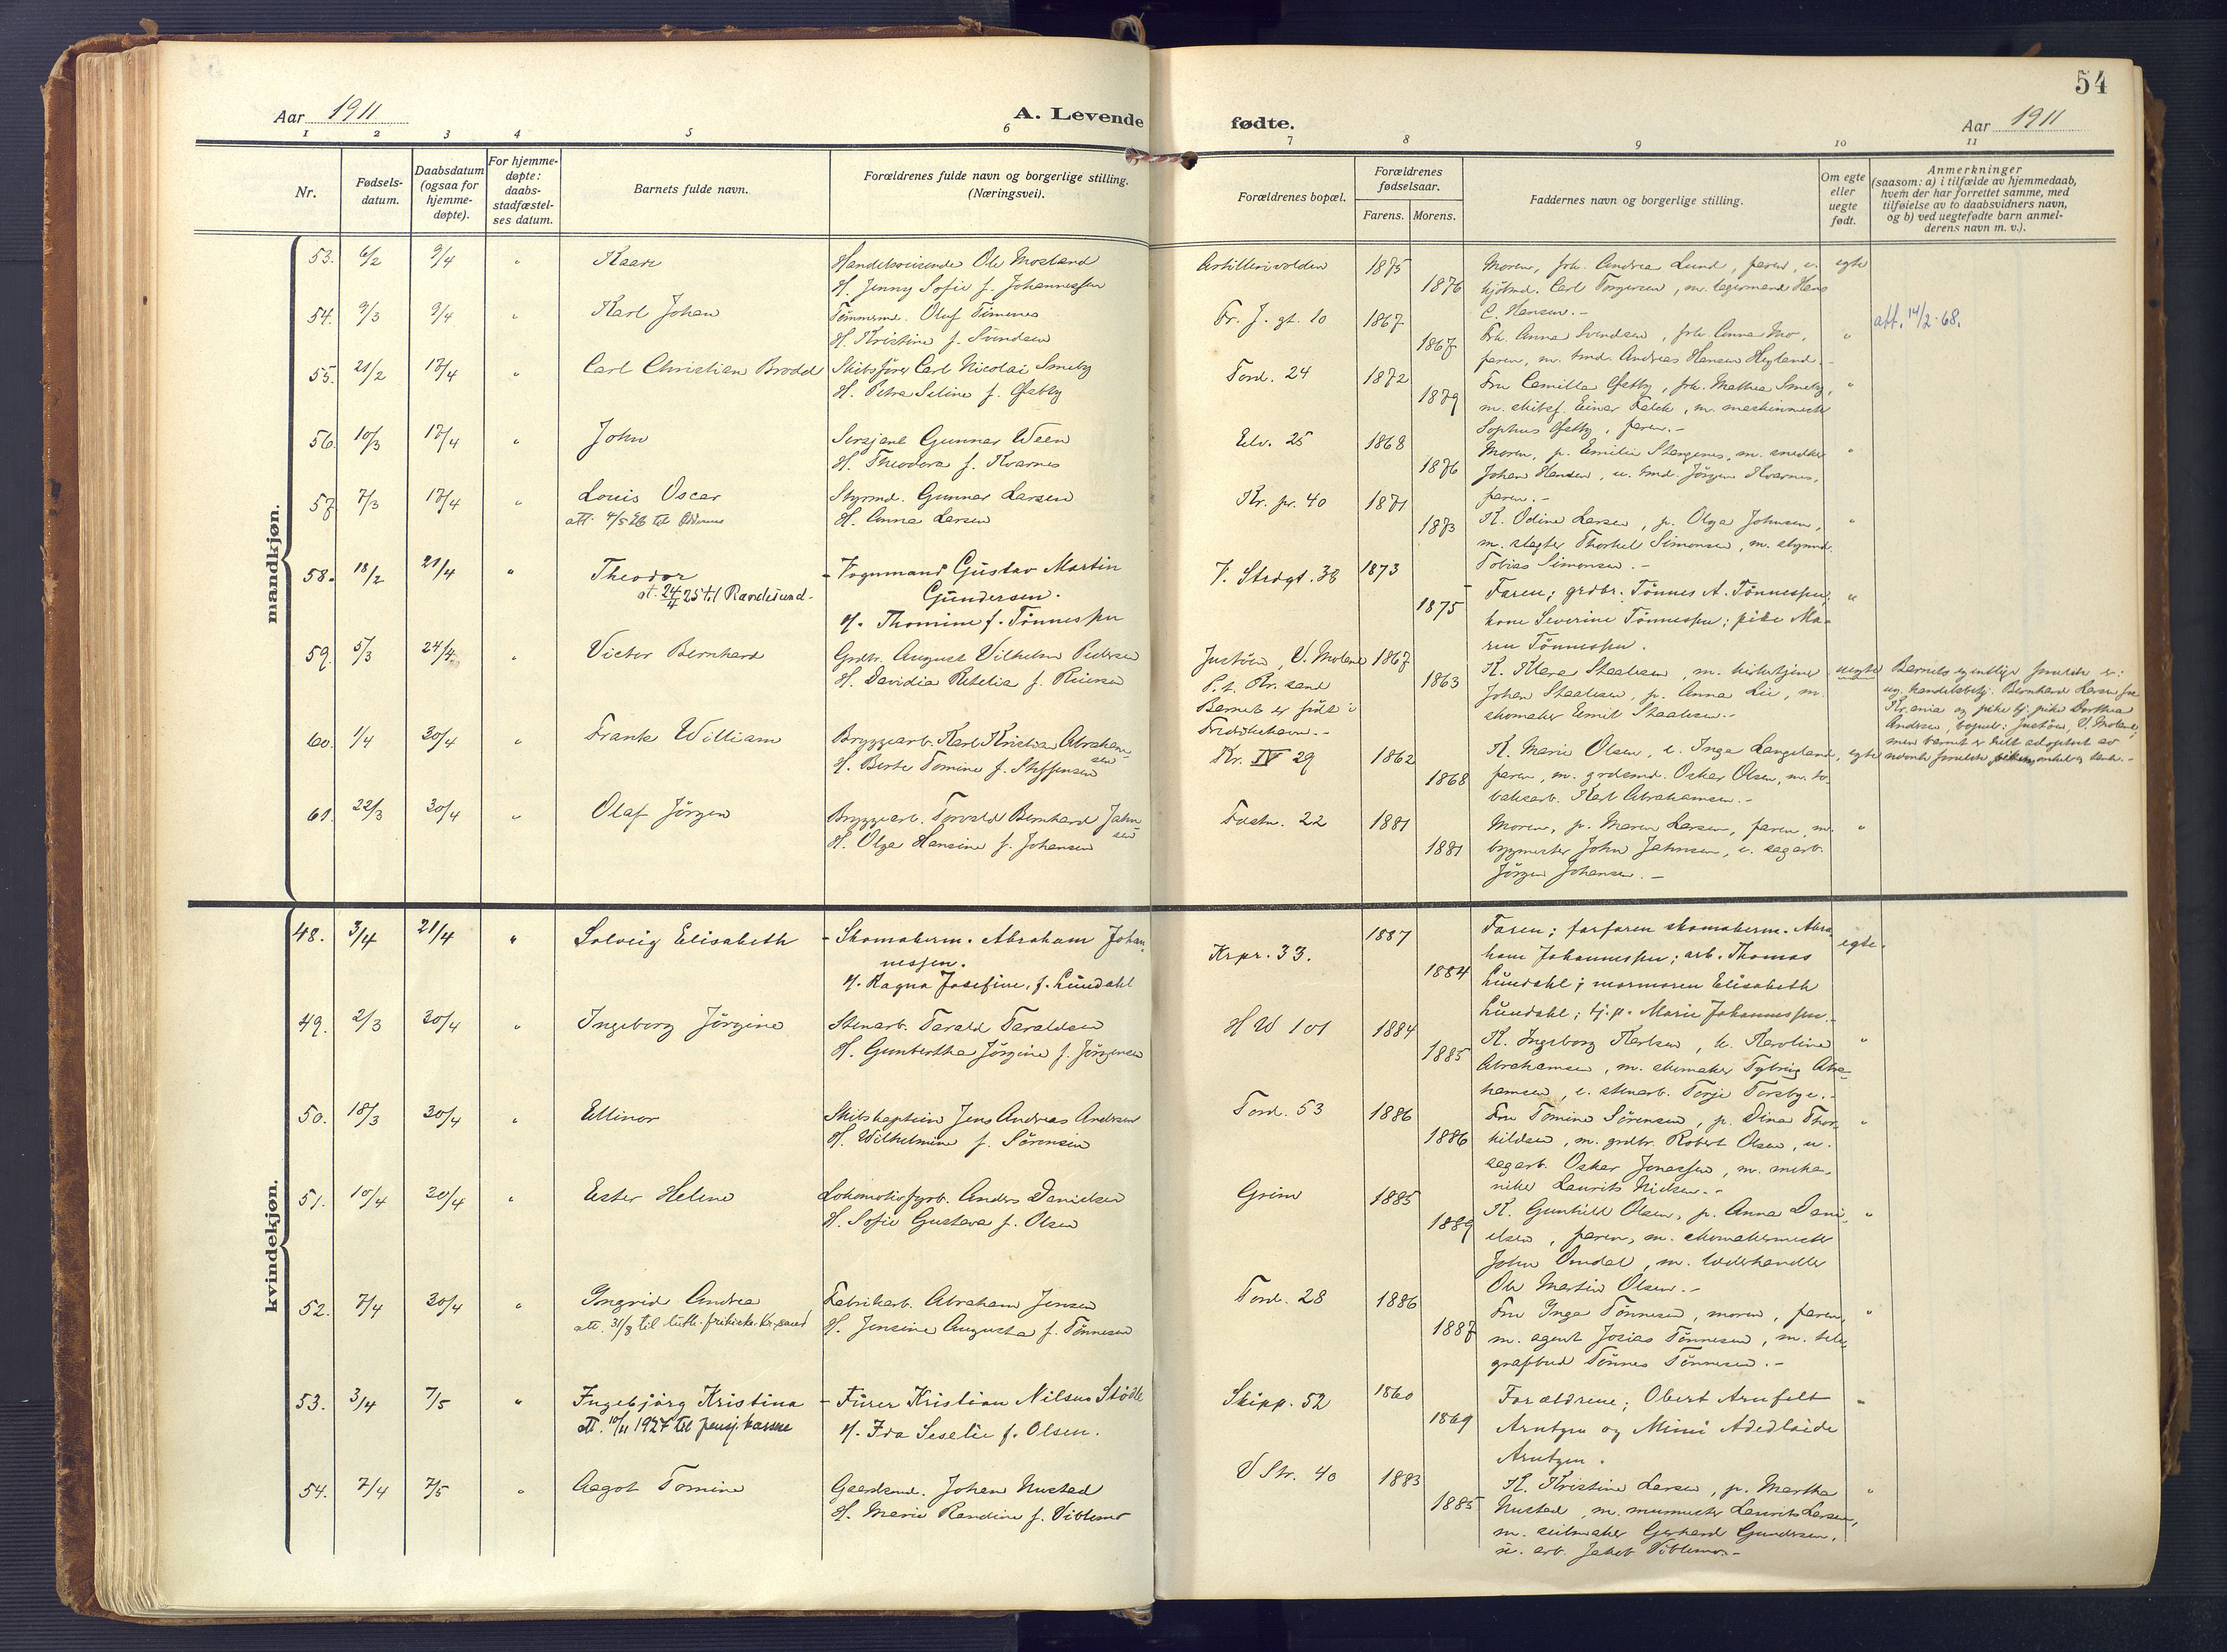 54
Aar 1911
A. Levende
fødte.
Aar 1911
1 2 3 4 5 6 7 8 9 10 11
Nr.
Fødsels-
datum.
Daabsdatum
(ogsaa for
hjemme-
døpte).
For hjemme-
døpte:
daabs-
stadfæstel-
ses datum.
Barnets fulde navn.
Forældrenes fulde navn og borgerlige stilling.
(Næringsvei).
Forældrenes bopæl.
Forældrenes
fødselsaar.
Farens. Morens.
Faddernes navn og borgerlige stilling.
Om egte
eller
uegte
født.
Anmerkninger
(saasom: a) i tilfælde av hjemmedaab,
hvem der har forrettet samme, med
tilføielse av to daabsvidners navn,
og b) ved uegtefødte barn anmel-
derens navn m. v.).
mandkjøn.
53. 6/2 9/4 " Kaare
Handelsreisende Ole Mosland
H. Jenny Sofie f. Johannessen
Artillerivolden 1875
1876
Moren, frk. Andrea Lund, faren, u.
kjøbmd. Carl Torgersen, m. lagermand Hans
C. Hansen.-
egte
54. 9/3 9/4 " Karl Johan
Tømmermd. Oluf Timenes
H. Kristine f. Svendsen
Fr. J. gt. 10 1867
1867
Frk. Anna Svendsen, frk. Anna Mo,
faren, m. smd. Andreas Hansen Høyland.-
"
att. 14/2-68.
55. 21/2 17/4 " Carl Christian Brodd
Skibsfører Carl Nicolai Smeby
H. Petra Seline f. Østby
Tord. 24 1872
1879
Fru Camilla Østby, frk. Mathea Smeby,
m. skibsf. Einar Falck, m. maskinmester
Sophus Østby, faren.-
"
56. 10/3 17/4 " John
Sersjant Gunnar Ween
H. Theodora f. Kvarnes
Elv. 25 1868
1876
Moren, p. Emilie Stangenes, m. snedker
Johan Hansen, u. smd. Jørgen Kvarnes,
faren.-
"
57. 7/3 17/4 " Louis Oscar
att. 4/5 26 til Oddernes
Styrmd. Gunnar Larsen
H. Anna Larsen
Kr. pr. 40 1871
1873
K. Odine Larsen, p. Olga Johnsen,
m. slagter Thorkel Simonsen, m. styrmd.
Tobias Simonsen.-
"
58. 18/2 21/4 " Theodor
at. 24/4 25 til Randesund.
- Vognmand Gustav Martin
Gundersen.
H. Thomine f. Tønnessen
V. Strdgt. 38 1873
1875
- Faren; grdbr. Tønnes A. Tønnessen;
kone Severine Tønnessen; pike Ma-
ren Tønnessen.
"
59. 5/3 24/4. " Victor Bernhard
Grdbr. August Vilhelm Pedersen
H. Davidia Retelia f. Reiersen
Justøen, V. Moland
P. t. Kr.sand
Barnet er født i
Fredrikshavn.-
1867
1863
K. Klara Staalesen, m. kirketjener
Johan Staalesen, p. Anna Lie, m.
skomaker Emil Staalesen.-
uegte
Barnets egentlige forældre er:
ug. handelsbetj. Bernhard Larsen fra
Kr.ania og pike tj. pike Dorthea
Andersen, bopæl: Justøen, V. Moland,
men barnet er helt adoptert av
60. 1/4 30/4 " Frank William
Bryggearb. Karl Kristian Abraham-
sen
H. Berte Tomine f. Steffensen
Kr. IV 29 1862
1868
K. Marie Olsen, u. Inga Langeland,
faren, m. grdsmd. Oskar Olsen, m. to-
baksarb. Karl Abrahamsen.-
egte
61. 22/3 30/4 " Olaf Jørgen
Bryggearb. Torvald Bernhard Jahn-
sen
H. Olga Hansine f. Johansen
Fæstn. 22 1881
1881
Moren, p. Maren Larsen, faren, m.
bygmester John Jahnsen, u. sagarb.
Jørgen Johansen.-
"
kvindekjøn.
48. 3/4 21/4 " Solveig Elisabeth
- Skomakerm. Abraham Johan-
nessen.
H. Ragna Josefine, f. Lundahl
Krpr. 33. 1887
1884
Faren; farfaren skomakerm. Abra
ham Johannessen; arb. Thomas
Lundahl; mormoren Elisabeth
Lundahl; tj.p. Marie Johannessen.-
egte.
49. 2/3 30/4 " Ingeborg Jørgine
Stenarb. Tarald Taraldsen
H. Gunbertha Jørgine f. Jørgensen
H W 101 1884
1885
K. Ingeborg Karlsen, k. Karoline
Abrahamsen, m. skomaker Tybring Abra-
hamsen, u. stenarb. Torje Torsbye.-
"
50. 18/3 30/4 " Ellinor
Skibskaptein Jens Andreas Andersen
H. Wilhelmine f. Sørensen
Tord. 53 1886
1886
Fru Tomine Sørensen, p. Dina Thor-
kildsen, m. grdbr. Robert Olsen, u.
sagarb. Oskar Jonassen, m. meka-
niker Laurits Nielsen.-
"
51. 10/4 30/4 " Ester Helene
Lokomotivfyrb. Anders Danielsen
H. Sofie Gustava f. Olsen
Grim 1885
1889
K. Gunhild Olsen, p. Anna Dani-
elsen, faren, m. skomakermester
John Omdal, m. læderhandler
Ole Martin Olsen.-
"
52. 7/4 30/4 " Yngrid Andrea
att. 31/8 til luth. frikirke Kr.sand
Fabrikarb. Abraham Jensen
H. Jensine Augusta f. Tønnesen
Tord. 28 1886
1887
Fru Inga Tønnesen, moren, faren,
m. agent Josias Tønnesen, m. tele-
grafbud Tønnes Tønnesen.-
"
53. 3/4 7/5 " Ingebjørg Kristina
att. 10/11 1927 til pensj.kasse
- Furer Kristian Nilsen Stødle
H. Ida Seselie f. Olsen.
Skipp. 52 1860
1869
Forældrene; Obert Arnfelt
Arntzen og Mimi Adedlaide
Arntzen.
"
54. 7/4 7/5 " Aagot Tomine
Gaardsmd. Johan Nustad
H. Marie Randine f. Viblemo
V Str. 40 1883
1885
K. Kristine Larsen, p. Martha
Nustad, m. murmester Laurits Larsen,
m. seilmaker Gerhard Gundersen,
u. arb. Jakob Viblemo.-
"